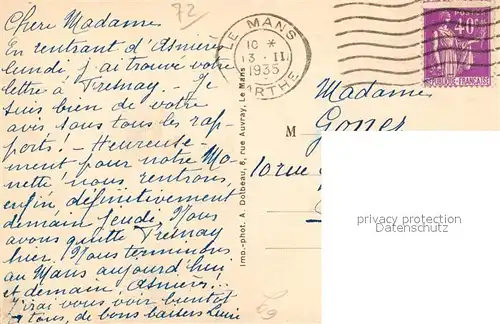 72
Chere Madame
En rentrant d'Asnières
lundi j'ai trouvé votre
lettre à Fresnay - Je
suis bien de votre
avis sous tous les rap-
ports! - Heureuse-
ment pour notre Mo-
nette nous rentrons
enfin définitivement
demain Jeudi. Nous
avons quitté Fresnay
hier. Nous terminons
au Mans aujourd'hui
et demain Asnières...
J'irai vous voir bientôt
à tous, de bons baisers
LE MANS
10 *
13 - II
1935
SARTHE
POSTES
40c
REPUBLIQUE-FRANCAISE
Imp.-phot. A. Dolbeau, 6, rue Auvray, Le Mans
Madame
M
10 rue
privacy protection